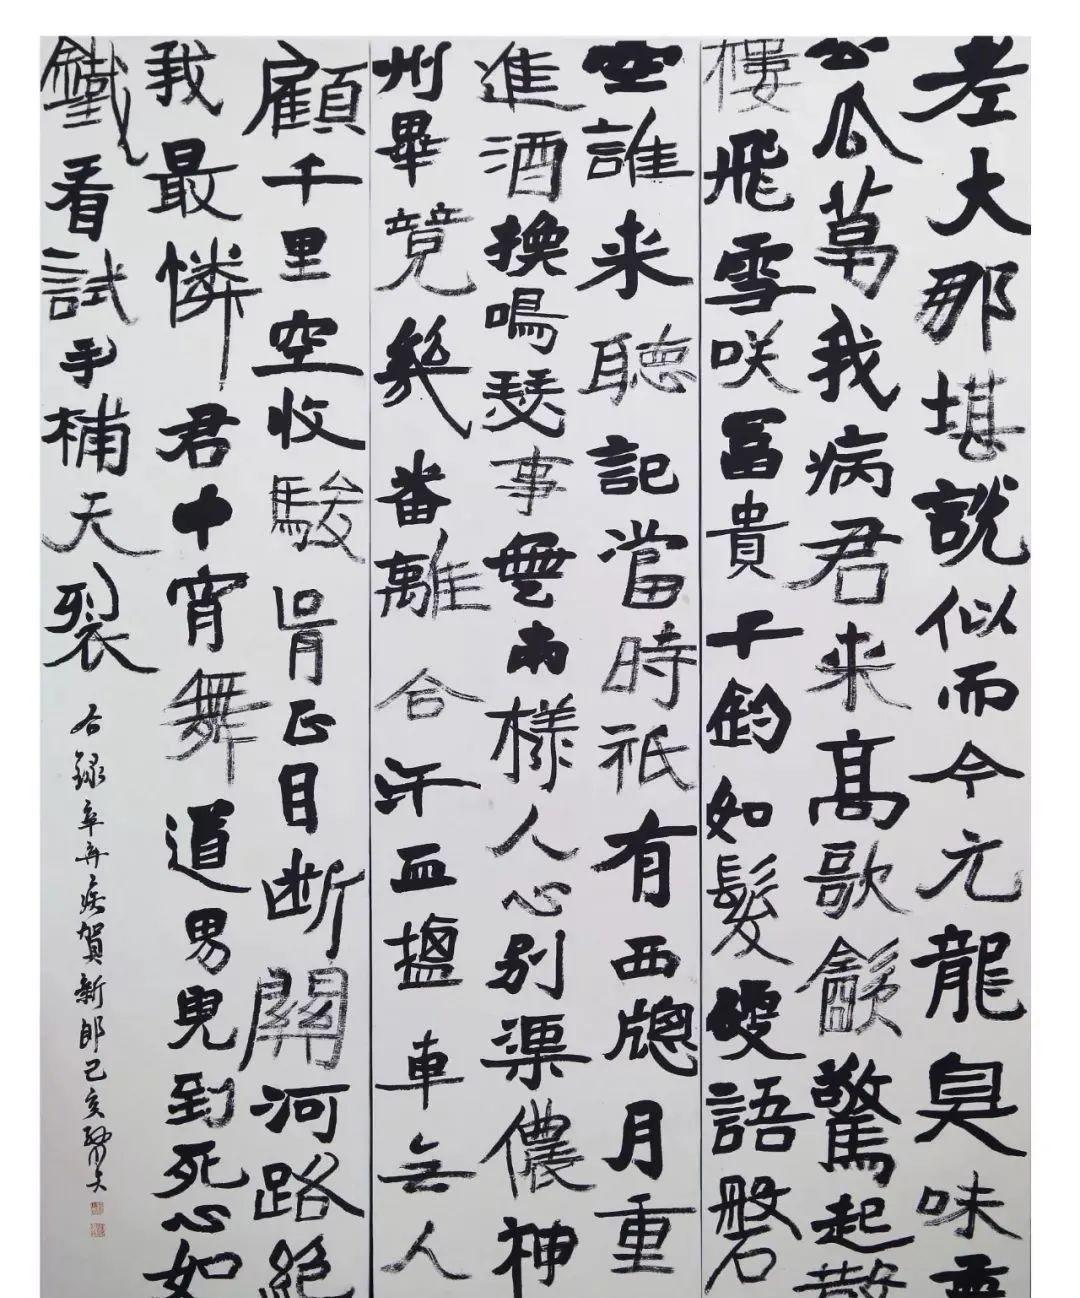 老大那堪說似而今元龍臭味孟
公瓜葛我病君来高歌飲驚起散
樓飛雪咲富貴千鈞如髮硬語磐
空誰来聽記當時祇有西牕月重
進酒換鳴瑟事無兩樣人心別渠儂神
州畢竟幾番離合汗血鹽車无人
顧千里空收駿骨正目断關河路絕
我最憐君中宵舞道男兒到死心如
鐵看試手補天裂
右録辛弃疾賀新郎己亥